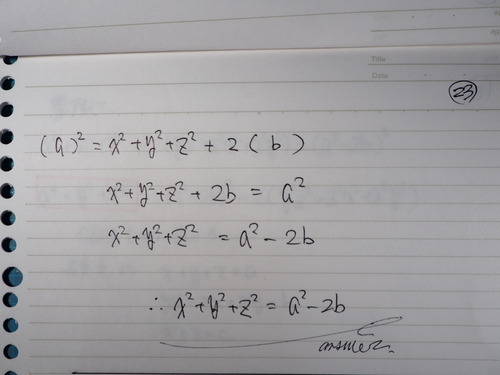 Title
Date
23
(a)² = x² + y² + z² + 2 (b)
x² + y² + z² + 2b = a²
x² + y² + z² = a² - 2b
∴ x² + y² + z² = a² - 2b
answer.